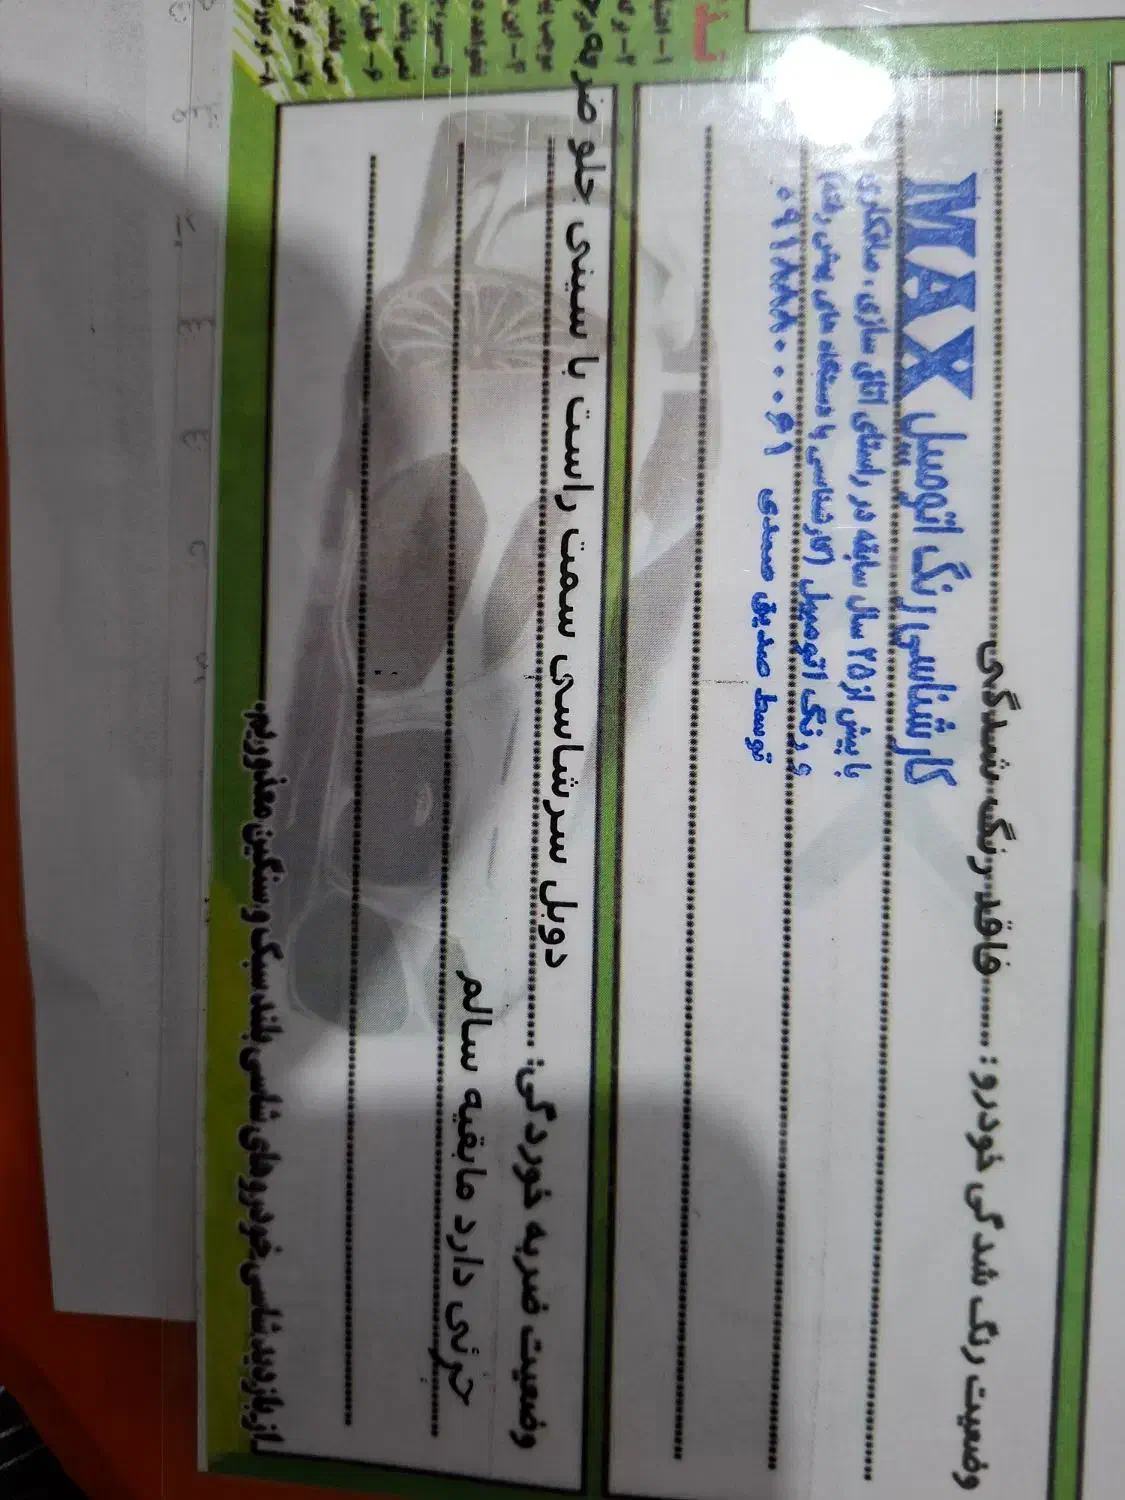 وضعیت رنگ شدگی خودرو : فاقد رنگ شدگی
MAX
کارشناسی رنگ اتومبیل
با بیش از ۲۵ سال سابقه در راستای اتاق سازی ، صافکاری
و رنگ اتومبیل (کارشناسی با دستگاه های پیش رفته)
توسط صدیق صمدی ۰۹۱۸۸۸۰۰۰۶۱
وضعیت ضربه خوردگی: دوبل سرشاسی سمت راست با سینی جلو ضربه
جزئی دارد مابقیه سالم
از بازدید شاسی خودروهای شاسی بلند سبک و سنگین معذوریم.